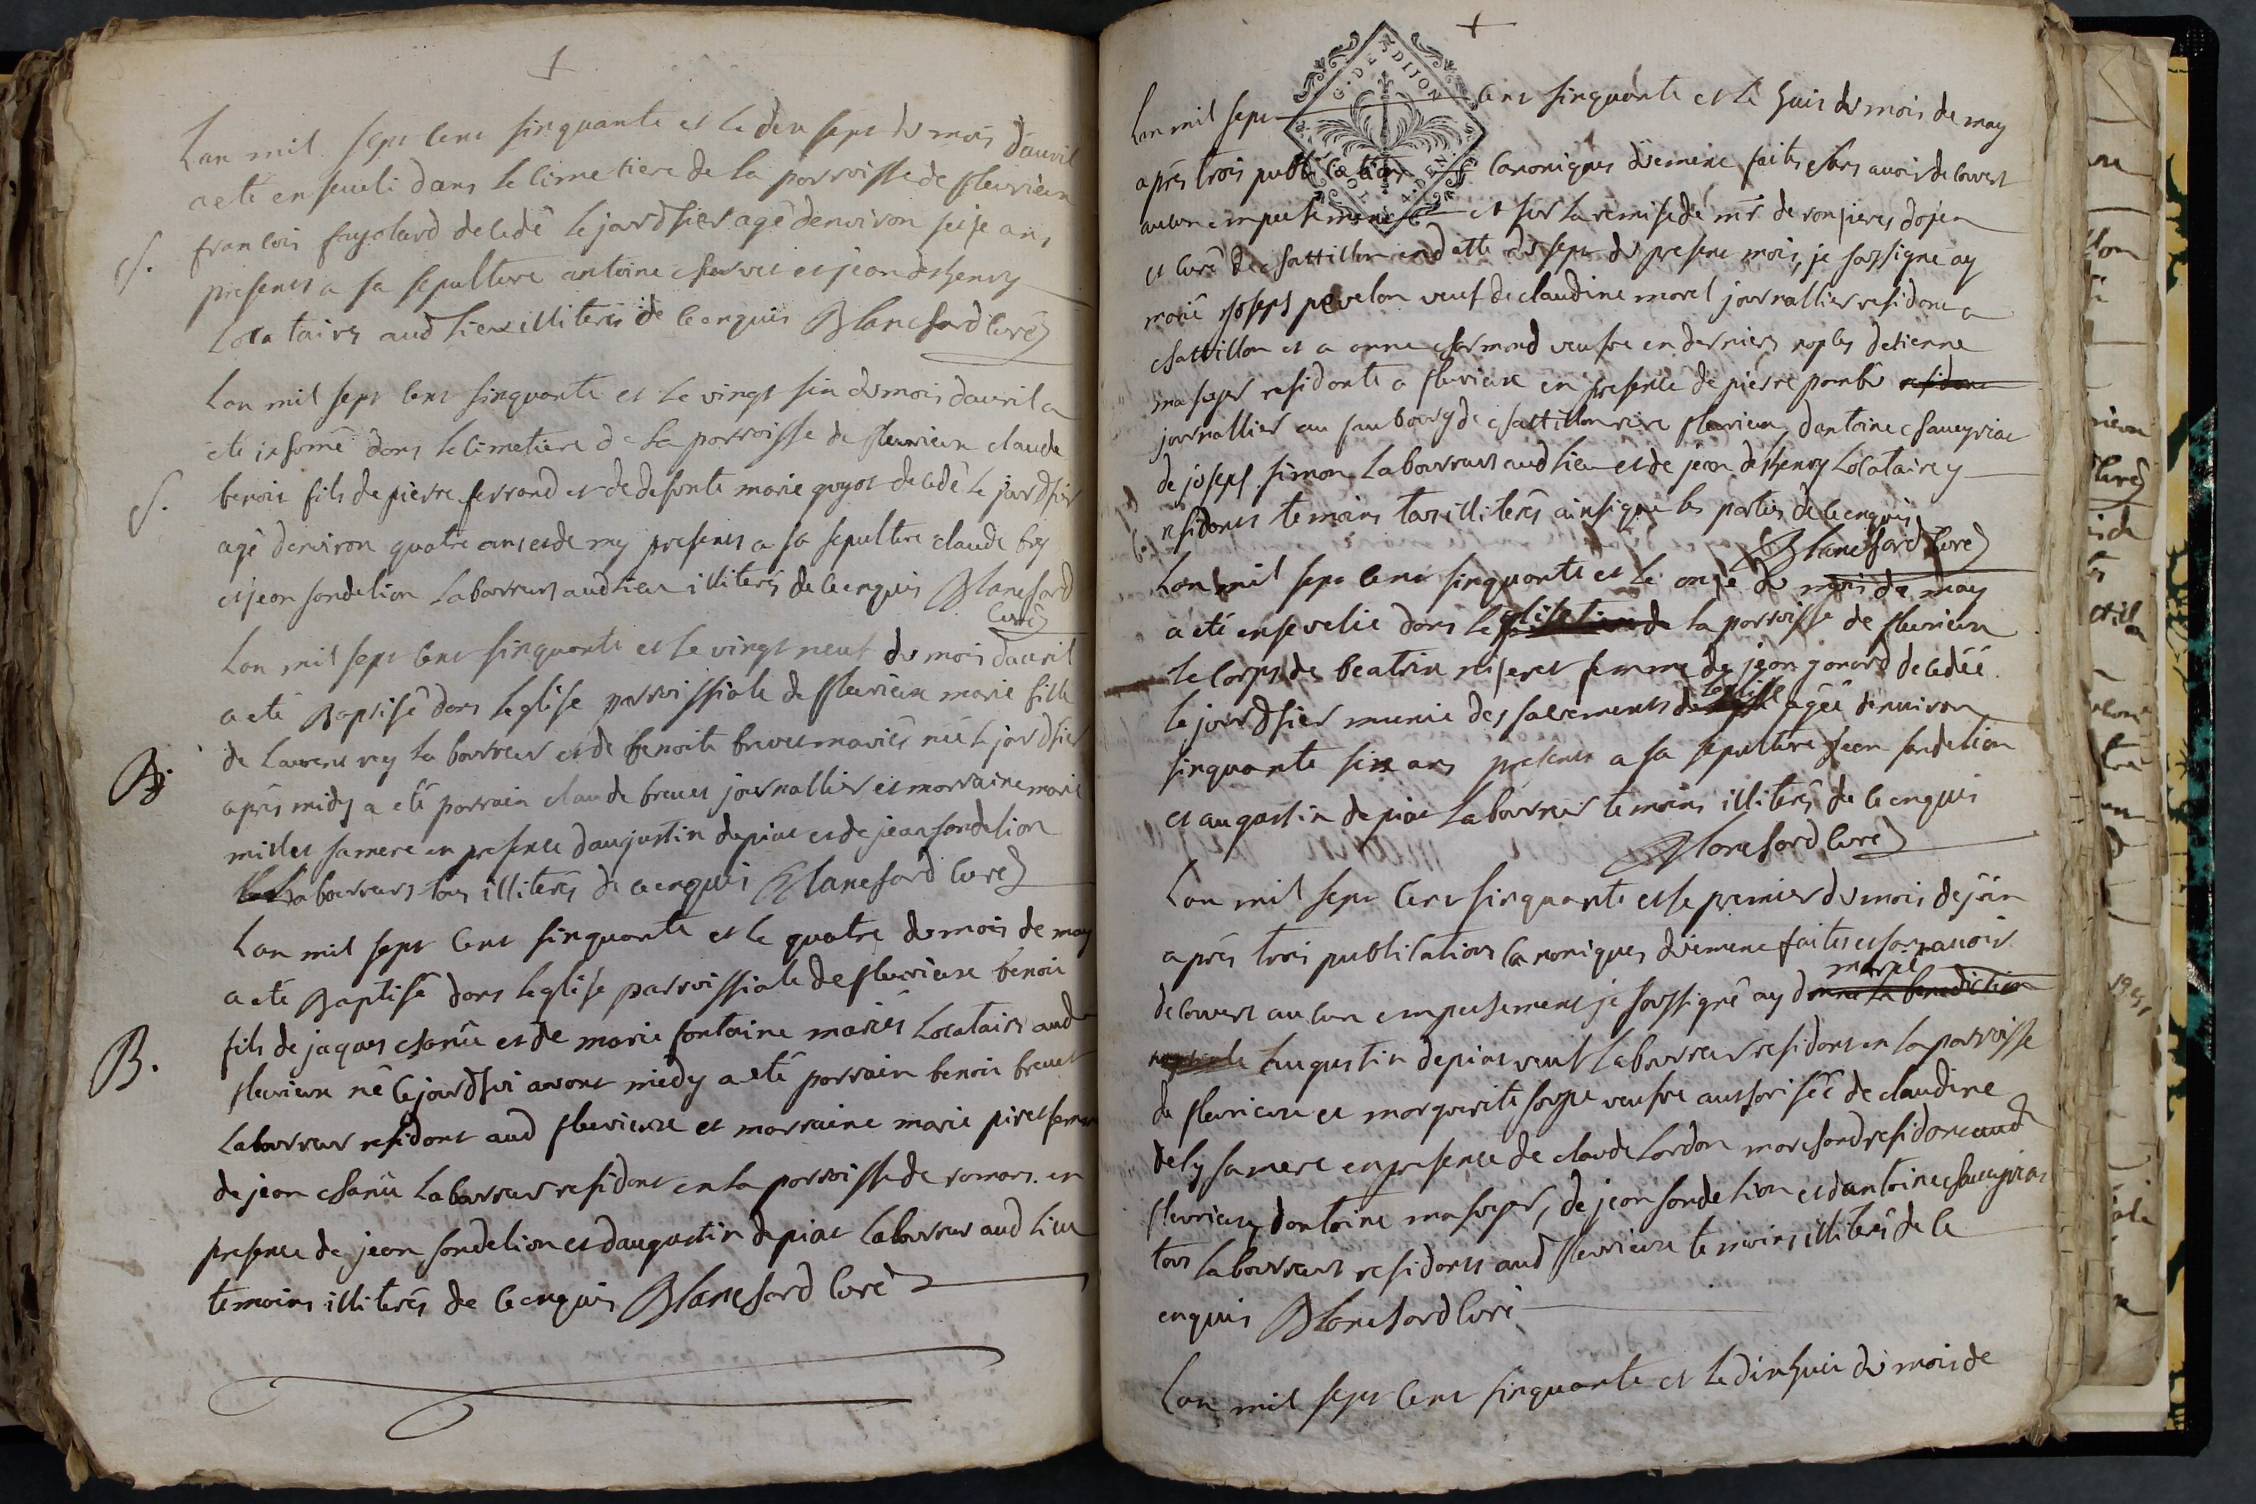 Lan mil sept cent sinquante et le dix sept du mois dauril
a eté enseueli dans le cimetiere de la parroisse de fleurieux
françois fayolard decedé le jourdhier agé denuiron seise ans
S.
presents a sa sepulture antoine et jean deshenry
locataires aud lieu illiterés de ce enquis Blanchard curé
Lan mil sept cent sinquante et le vingt sin du mois dauril a
eté inhumé dans le cimetiere de la parroisse de fleurieux claude
benoit fils de pierre ferrand et de defunte marie guyot decedé le jourdhier
S.
agé denuiron quatre ans et demy presents a sa sepulture claude frey
et jean sondelion laboureurs aud lieu illiterés de ce enquis Blanchard
curé
Lan mil sept cent sinquante et le vingt neuf du mois dauril
a eté Baptisé dans leglise parroissiale de fleurieux marie fille
de laurent rey laboureur et de benoite breuet mariés née le jourdhier
B.
après midy a eté parrain claude breuet journallier et marraine marie
millet sa mere en presence daugustin depiat et de jean sondelion
laboureurs tous illiterés de ce enquis Blanchard curé
Lan mil sept cent sinquante et le quatre du mois de may
a eté Baptisé dans leglise parroissiale de fleurieux benoit
fils de jaques chanü et de marie fontaine mariés locataires aud
B.
fleurieux né cejourdhui auant midy a eté parrain benoit breuet
laboureur resident aud fleurieux et marraine marie piret femme
de jean chanü laboureur resident en la parroisse de romans en
presence de jean sondelion et daugustin depiat laboureur aud lieu
temoins illiterés de ce enquis Blanchard curé
G. DE DIJON
Lan mil sept cent sinquante et le huit du mois de may
après trois publications canoniques duement faites sans auoir decouvert
aucun empechement et sur la remise de mr. de ronsieres doyen
et curé de chattillon en datte du sept du present mois, je soussigné ay
marié joseph pevelon veuf de claudine morel journallier resident a
chattillon et a anne charmond veufve en derniers noples detienne
masoyer residante a fleurieux en presence de pierre residant
journallier au faubourg de chattillon rire fleurieux, dantoine chaueyriat
de joseph simon laboureurs aud lieu et de jean deshenry locataire y
residents temoins tous illiterés ainsi que les parties de ce enquis
Blanchard curé
Lan mil sept cent sinquante et le onze du mois de may
a eté enseuelie dans leglise de la parroisse de fleurieux
le corps de beatrix niseret femme de jean gonard decedée
le jourdhier munie des sacrements de leglise agée denuiron
sinquante six ans presents a sa sepulture jean sondelion
et augustin depiat laboureur temoins illiterés de ce enquis
Blanchard curé
Lan mil sept cent sinquante et le premier du mois de juin
après trois publications canoniques duement faites et sans auoir
decouvert aucun empechement je soussigné ay donné la benediction
marié
augustin depiat veuf laboureur resident en la parroisse
de fleurieux et marguerite veufve authorisée de claudine
dely sa mere en presence de claude lardon marchand resident aud
fleurieux, dantoine masoyer, de jean sondelion et dantoine chaueyriat
tous laboureurs residents aud fleurieux temoins illiterés de ce
enquis Blanchard curé
Lan mil sept cent sinquante et le dixhuit du mois de